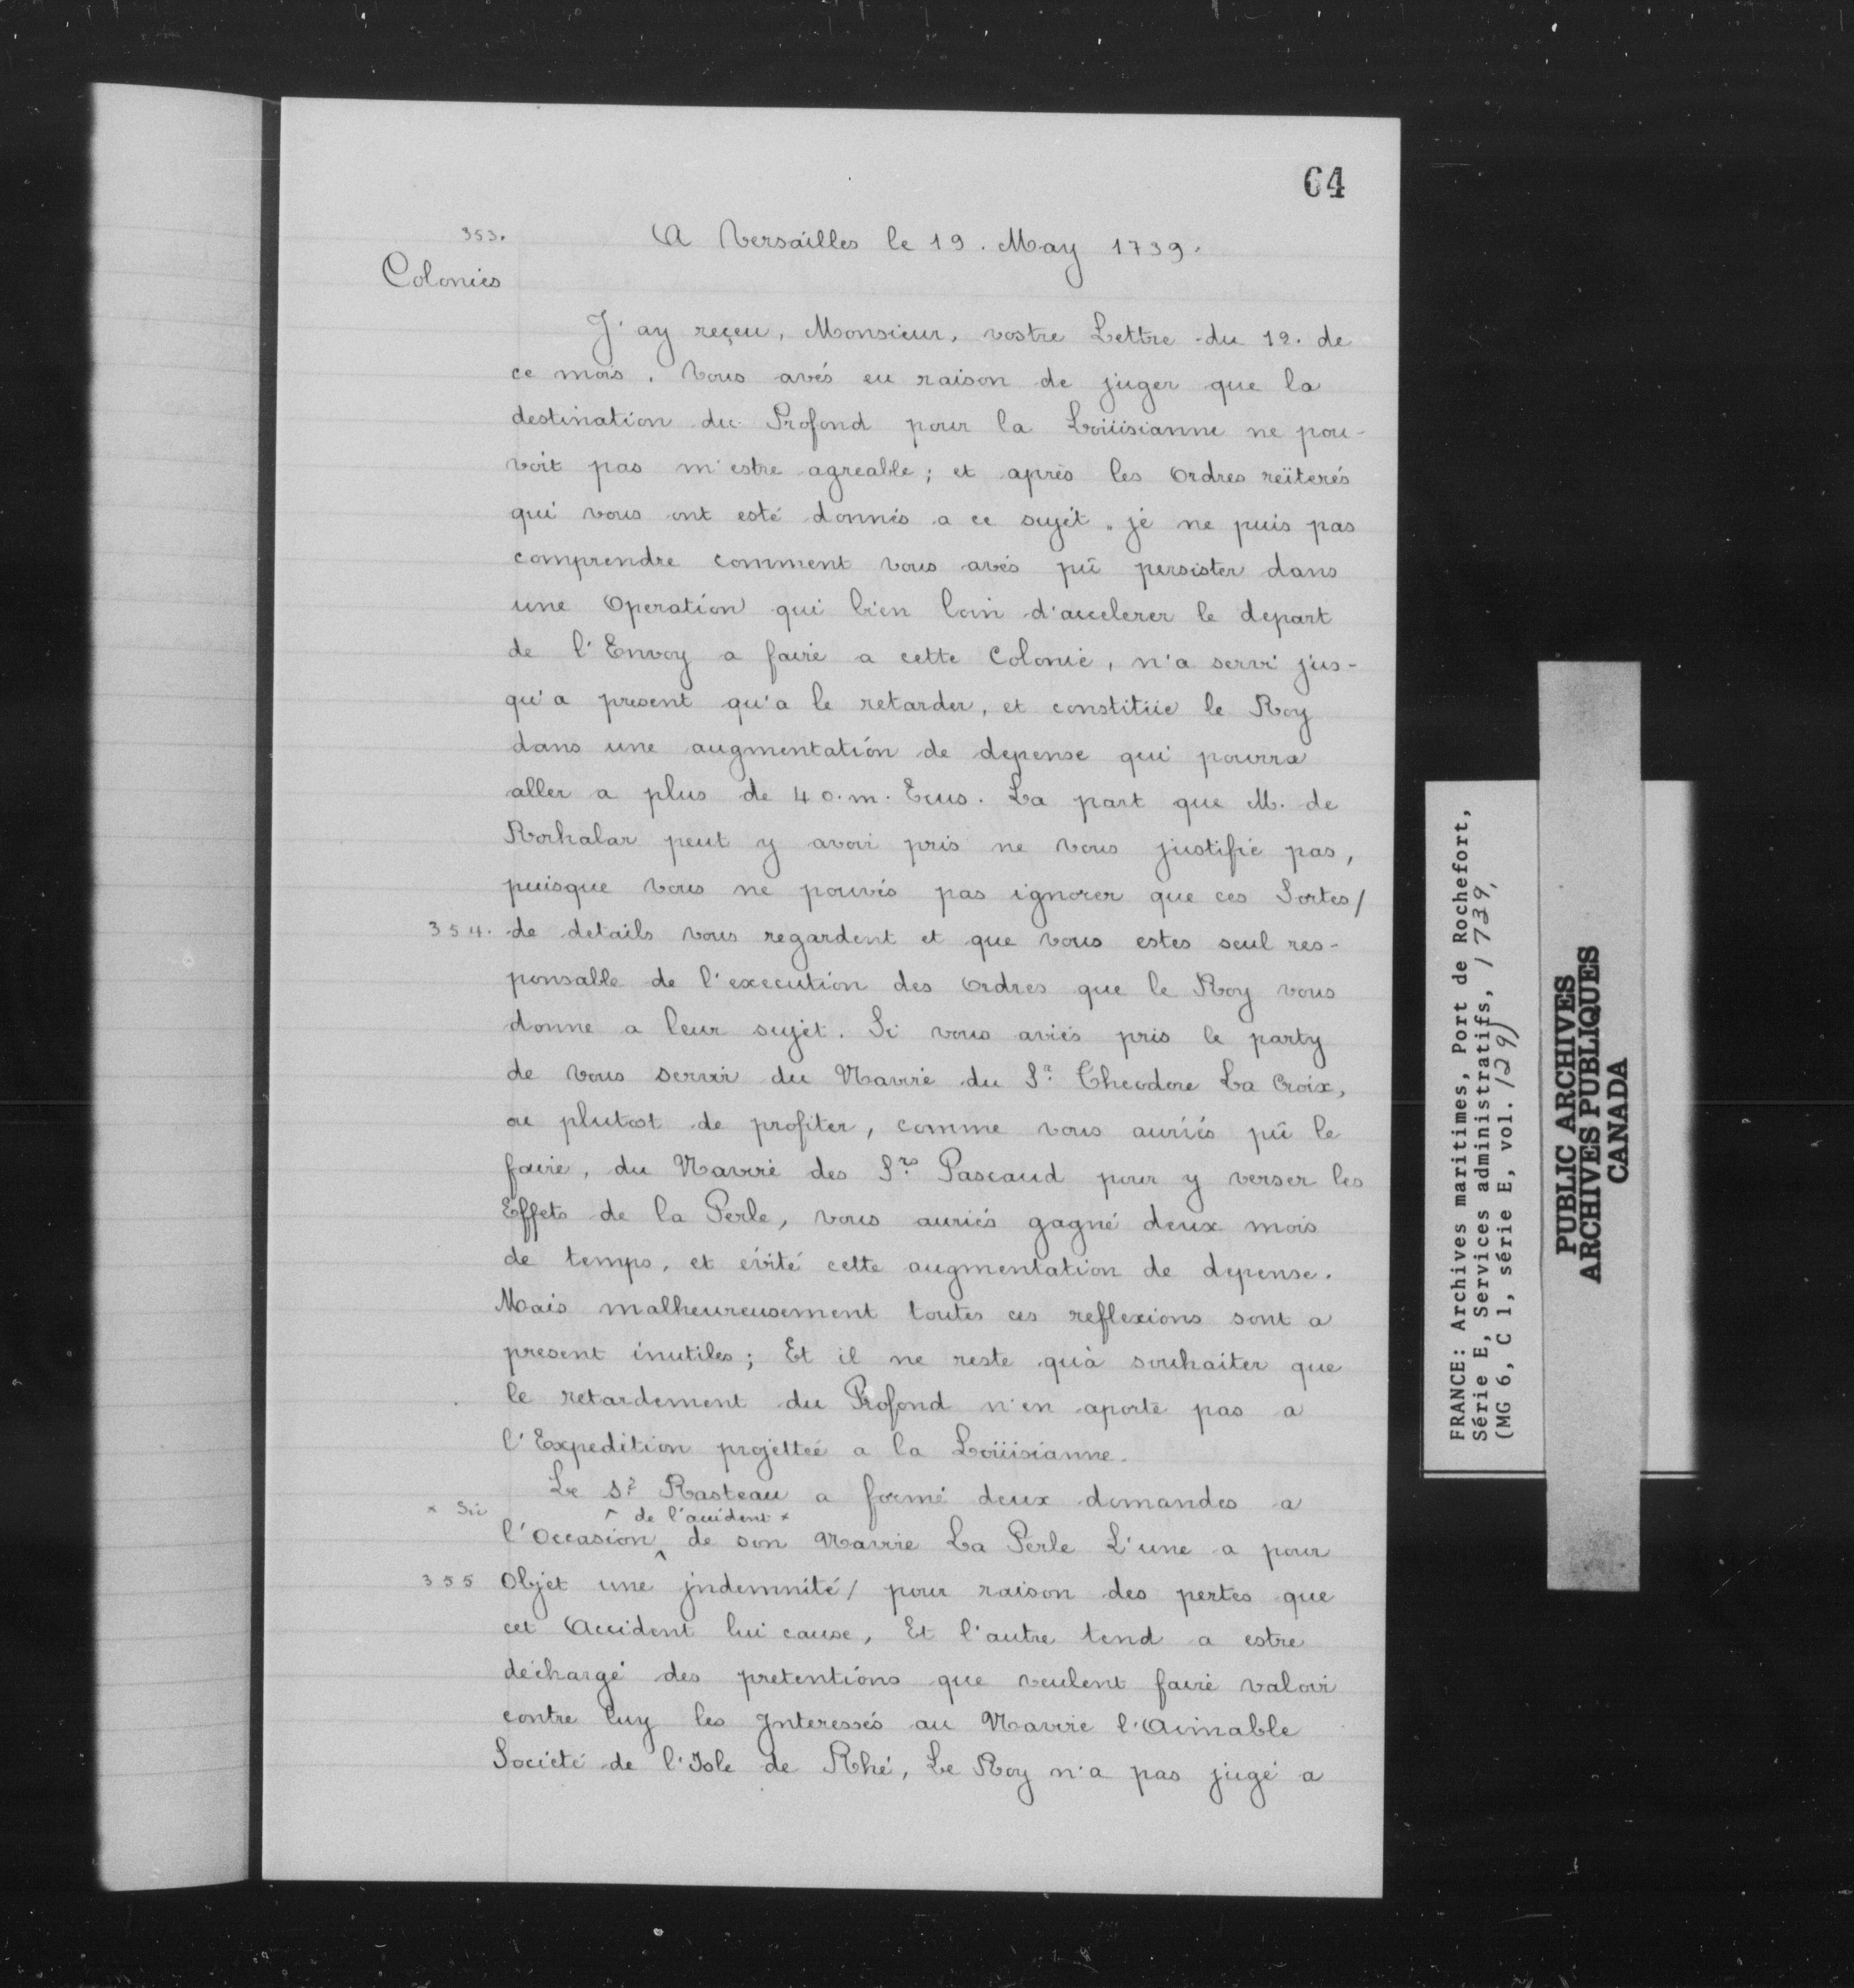 64
353.
A Versailles le 19. May 1739.
Colonies
J'ay reçeu, Monsieur, vostre Lettre du 12. de
ce mois. Vous avés eu raison de juger que la
destination du Profond pour la Loüisianne ne pou-
voit pas m'estre agreable; et après les Ordres reïterés
qui vous ont esté donnés a ce sujét. je ne puis pas
comprendre comment vous avés pû persister dans
une Operation qui bien loin d'accelerer le depart
de l'Envoy a faire a cette Colonie, n'a servi jus-
qu'a present qu'a le retarder, et constitüe le Roy
dans une augmentation de depense qui pourra
aller a plus de 40.m. Ecus. La part que M. de
Rorhalar peut y avoir pris ne vous justifie pas,
puisque vous ne pouvés pas ignorer que ces Sortes/
354. de details vous regardent et que vous estes seul res-
ponsable de l'execution des Ordres que le Roy vous
donne a leur sujét. Si vous aviés pris le party
de vous servir du Navire du Sr. Theodore La Croix,
ou plutost de profiter, comme vous auriés pû le
faire, du Navire des Srs. Pascaud pour y verser les
Effets de la Perle, vous auriés gagné deux mois
de temps, et évité cette augmentation de depense.
Mais malheureusement toutes ces reflexions sont a
present inutiles; Et il ne reste qu'à souhaiter que
le retardement du Profond n'en aporte pas a
l'Expedition projettée a la Loüisianne.
Le Sr. Rasteau a formé deux demandes a
x Sic
^ de l'accident x
l'Occasion ^ de son Navire La Perle L'une a pour
355 Objet une jndemnité/ pour raison des pertes que
cet Accident lui cause, Et l'autre tend a estre
déchargé des pretentions que veulent faire valoir
contre luy les Jnteressés au Navire l'Aimable
Société de l'Isle de Rhé, Le Roy n'a pas jugé a
FRANCE: Archives maritimes, Port de Rochefort,
Série E, Services administratifs, 1739,
(MG 6, C 1, série E, vol. 129)
PUBLIC ARCHIVES
ARCHIVES PUBLIQUES
CANADA